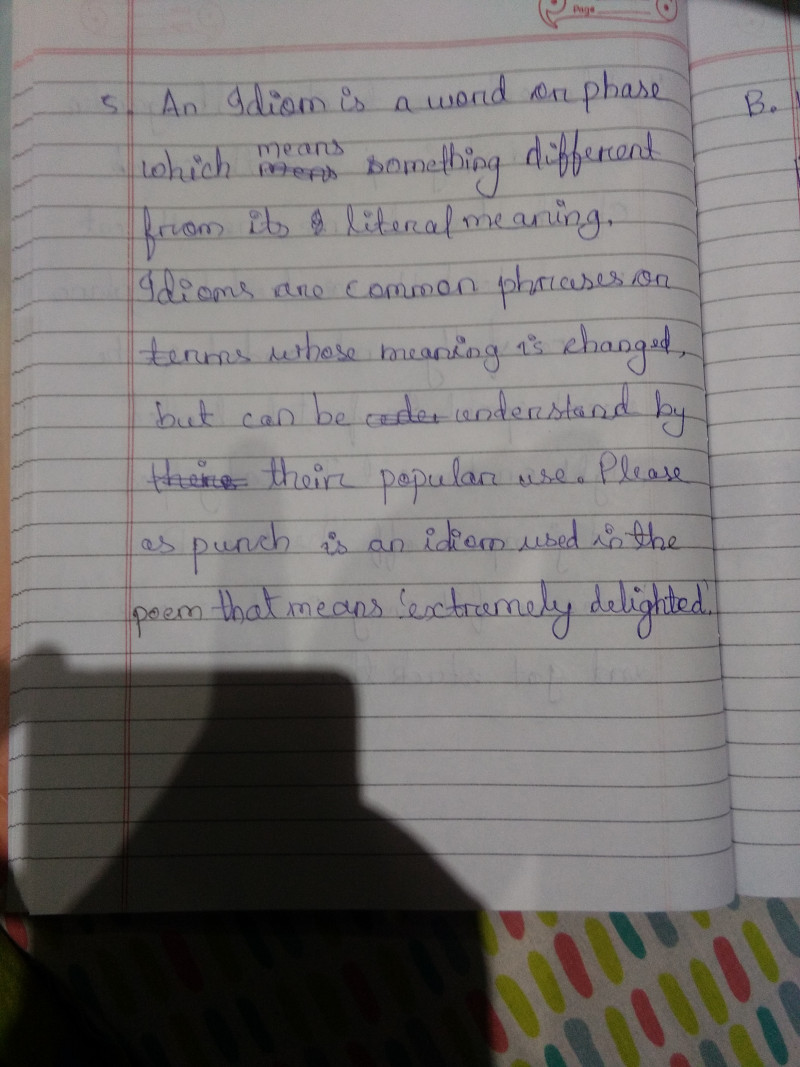 Page
5. An Idiom is a word or phase
which means something different
from its literal meaning.
Idioms are common phrases or
terms whose meaning is changed,
but can be understand by
their popular use. Please
as punch is an idiom used in the
poem that means 'extremely delighted.'
B.